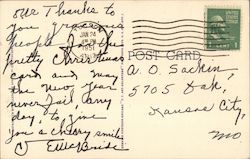 our Thanks to
you gracious
people for the
pretty Christmas
card and may
the New Year
never fail any
day, to give
you a cheery smile
JAN 24
1951
POST CARD
A. O. Sackin,
5705 Oak,
Kansas City,
Mo